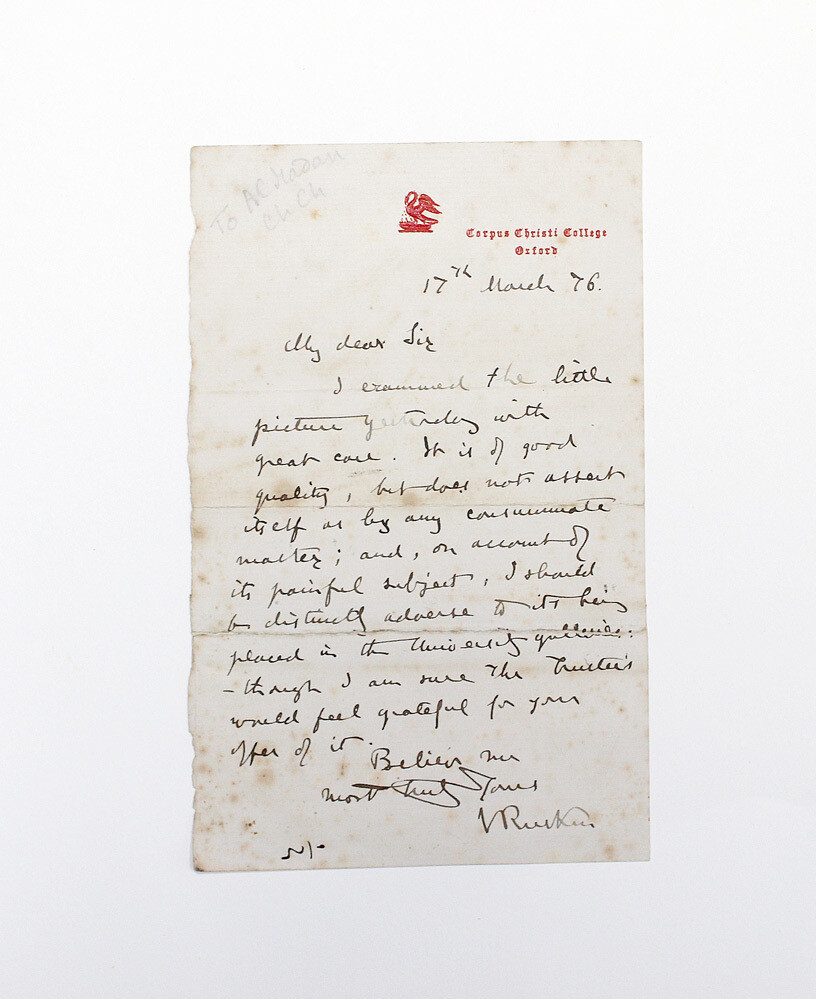 To AC Madan
Ch Ch
Corpus Christi College
Oxford
17th March 76.
My dear Sir
I examined the little
picture yesterday with
great care. It is of good
quality, but does not assert
itself as by any consummate
master; and, on account of
its painful subject, I should
be distinctly adverse to its being
placed in the University galleries:
- though I am sure the Trustees
would feel grateful for your
offer of it.
Believe me
most truly Yours
J Ruskin